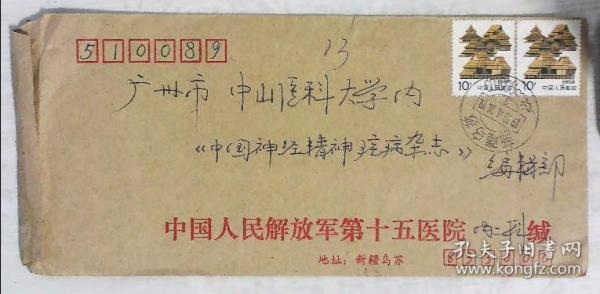 510089
13
10分
中国人民邮政
10分
中国人民邮政
广州市 中山医科大学内
《中国神经精神疾病杂志》
编辑部
中国人民解放军第十五医院 内二科 缄
地址：新疆乌苏
孔夫子旧书网
www.kongfz.com